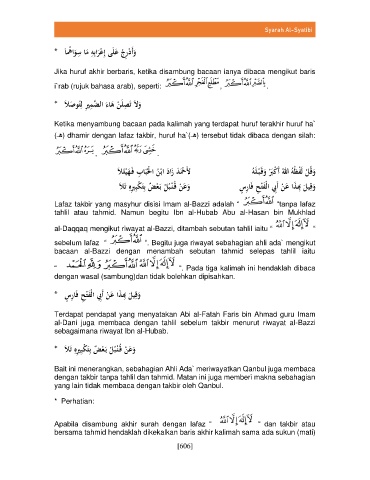 Syarah Al-Syatibi
* وَأَدْرِجْ عَلَى إِعْرَابِهِ مَا سِوَاهُمَا
Jika huruf akhir berbaris, ketika disambung bacaan ianya dibaca mengikut baris
i`rab (rujuk bahasa arab), seperti:
* وَلاَ تَصِلَنْ هَاءَ الضَّمِيرِ لِتُوصَلاَ
Ketika menyambung bacaan pada kalimah yang terdapat huruf terakhir huruf ha`
(ـه) dhamir dengan lafaz takbir, huruf ha`(ـه) tersebut tidak dibaca dengan silah:
وَقُلْ لَفْظُهُ اللهُ أَكْبَرْ وَقَبْلَهُ لأَحْمَدَ زَادَ ابْنُ الْحُبَابِ فَهَيْلَلاَ
وَقِيلَ بِهَذَا عَنْ أَبِي الْفَتْحِ فَارِسٍ وَعَنْ قُنْبُلٍ بَعْضٌ بِتَكْبِيرِهِ تَلاَ
Lafaz takbir yang masyhur disisi Imam al-Bazzi adalah “ اللَّهُ أَكْبَرُ ”tanpa lafaz
tahlil atau tahmid. Namun begitu Ibn al-Hubab Abu al-Hasan bin Mukhlad
al-Daqqaq mengikut riwayat al-Bazzi, ditambah sebutan tahlil iaitu “ لَآ إِلَٰهَ إِلَّا اللَّهُ ”
sebelum lafaz “ اللَّهُ أَكْبَرُ ”. Begitu juga riwayat sebahagian ahli ada` mengikut
bacaan al-Bazzi dengan menambah sebutan tahmid selepas tahlil iaitu
“ لَآ إِلَٰهَ إِلَّا اللَّهُ اللَّهُ أَكْبَرُ وَلِلَّهِ الْحَمْدُ ”. Pada tiga kalimah ini hendaklah dibaca
dengan wasal (sambung)dan tidak bolehkan dipisahkan.
* وَقِيلَ بِهَذَا عَنْ أَبِي الْفَتْحِ فَارِسٍ
Terdapat pendapat yang menyatakan Abi al-Fatah Faris bin Ahmad guru Imam
al-Dani juga membaca dengan tahlil sebelum takbir menurut riwayat al-Bazzi
sebagaimana riwayat Ibn al-Hubab.
* وَعَنْ قُنْبُلٍ بَعْضٌ بِتَكْبِيرِهِ تَلاَ
Bait ini menerangkan, sebahagian Ahli Ada` meriwayatkan Qanbul juga membaca
dengan takbir tanpa tahlil dan tahmid. Matan ini juga memberi makna sebahagian
yang lain tidak membaca dengan takbir oleh Qanbul.
* Perhatian:
Apabila disambung akhir surah dengan lafaz “ لَآ إِلَٰهَ إِلَّا اللَّهُ ” dan takbir atau
bersama tahmid hendaklah dikekalkan baris akhir kalimah sama ada sukun (mati)
[606]